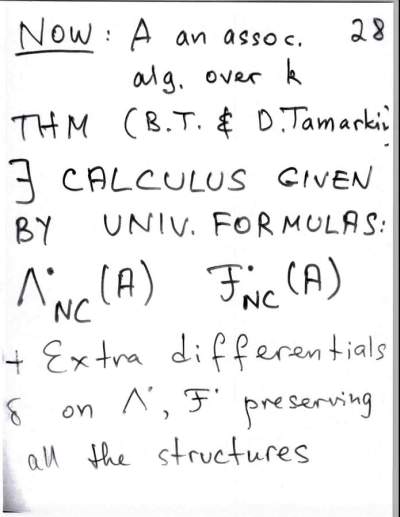 NOW: A an assoc. 28
alg. over k
THM (B.T. & D.Tamarkin
∃ CALCULUS GIVEN
BY UNIV. FORMULAS:
Λ˙NC (A) ℱ˙NC (A)
+ Extra differentials
δ on Λ˙, ℱ˙ preserving
all the structures